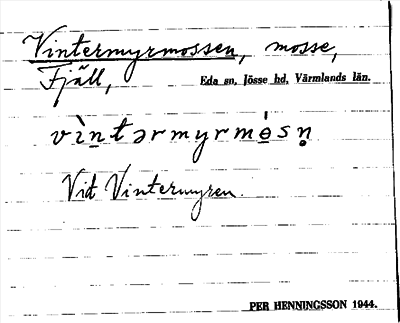 Vintermyrmossen, mosse,
Fjäll,
Eda sn, Jösse hd, Värmlands län.
vìn̠tərmyrmò̠sn̥
Vid Vintermyren.
PER HENNINGSSON 1944.